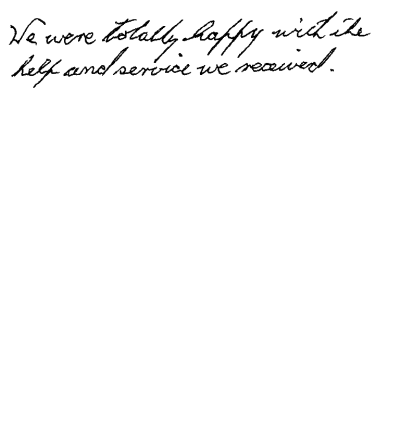 We were totally happy with the
help and service we received.